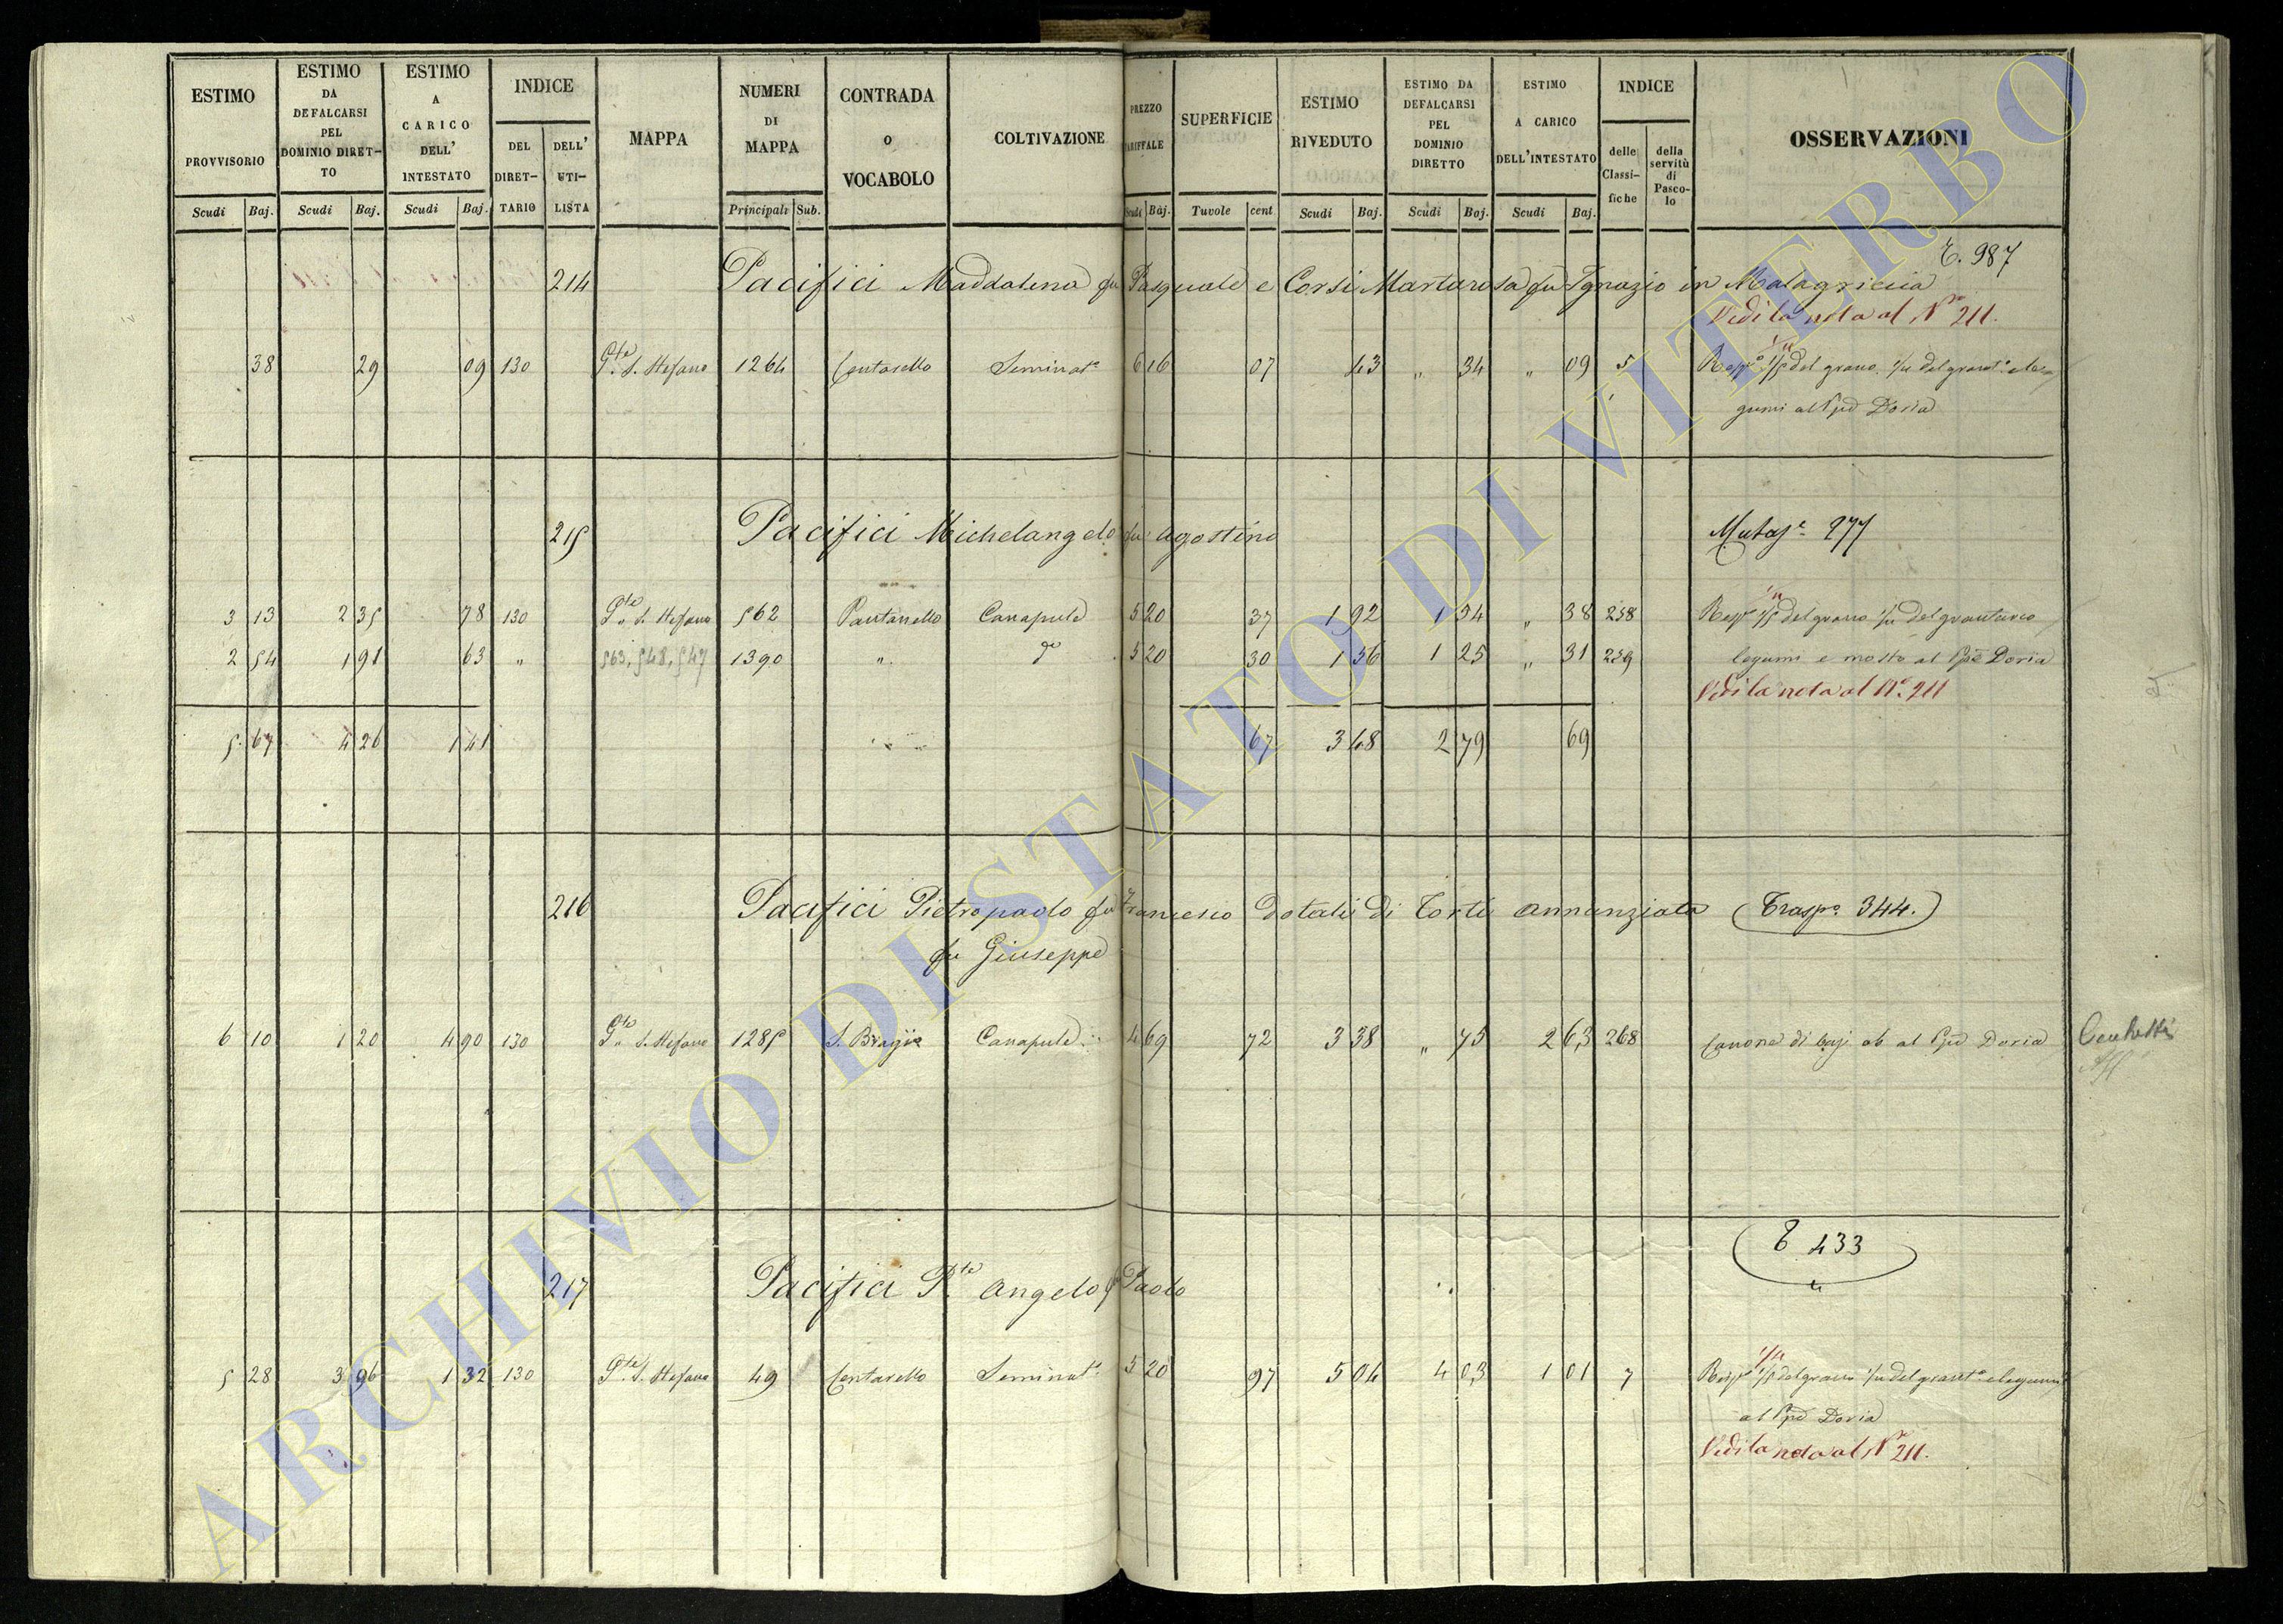 ESTIMO PROVVISORIO Scudi Baj.
ESTIMO DA DEFALCARSI PEL DOMINIO DIRET-TO Scudi Baj.
ESTIMO A CARICO DELL' INTESTATO Scudi Baj.
INDICE DEL DIRET-TARIO DELL' UTI-LISTA
MAPPA
NUMERI DI MAPPA Principali Sub.
CONTRADA O VOCABOLO
COLTIVAZIONE
PREZZO TARIFFALE Scudi Baj.
SUPERFICIE Tavole cent
ESTIMO RIVEDUTO Scudi Baj.
ESTIMO DA DEFALCARSI PEL DOMINIO DIRETTO Scudi Baj.
ESTIMO A CARICO DELL'INTESTATO Scudi Baj.
INDICE delle Classi-fiche della servitù di Pasco-lo
OSSERVAZIONI
T. 987
214 Pacifici Maddalena fu Pasquale e Corsi Marta fu Ignazio in Malagriccia
Vedi la nota al N.º 211.
38 29 09 130 P.te S. Stefano 1264 Centarello Seminat.º 6 16 07 43 " 34 " 09 5 Risp.º 1/5 del grano 1/4 del grant.º e le-
gumi al Ppe Doria
215 Pacifici Michelangelo fu Agostino Mutaz.e 277
3 13 2 35 78 130 P.te S. Stefano 562 Pantanello Canapule 5 20 37 1 92 1 54 " 38 258 Risp.º 1/5 del grano 1/4 del granturco
2 54 1 91 63 " 563, 548, 547 1390 " dº 5 20 30 1 56 1 25 " 31 259 legumi e mosto al Ppe Doria
Vedi la nota al N.º 211
5 67 4 26 1 41 67 3 48 2 79 69
216 Pacifici Pietropaolo fu Francesco Dotali di Torti Annunziata (Trasp.º 344.)
fu Giuseppe
6 10 1 20 4 90 130 P.te S. Stefano 1285 S. Biagio Canapule 4 69 72 3 38 " 75 2 63 268 Canone di baj. 06 al Ppe Doria
T 433
217 Pacifici P.te Angelo fu Paolo
5 28 3 96 1 32 130 P.te S. Stefano 49 Centarello Seminat.º 5 20 97 5 04 4 03 1 01 7 Risp.º 1/5 del grano 1/4 del grant.º e legumi
al Ppe Doria
Vedi la nota al N.º 211.
ARCHIVIO DI STATO DI VITERBO